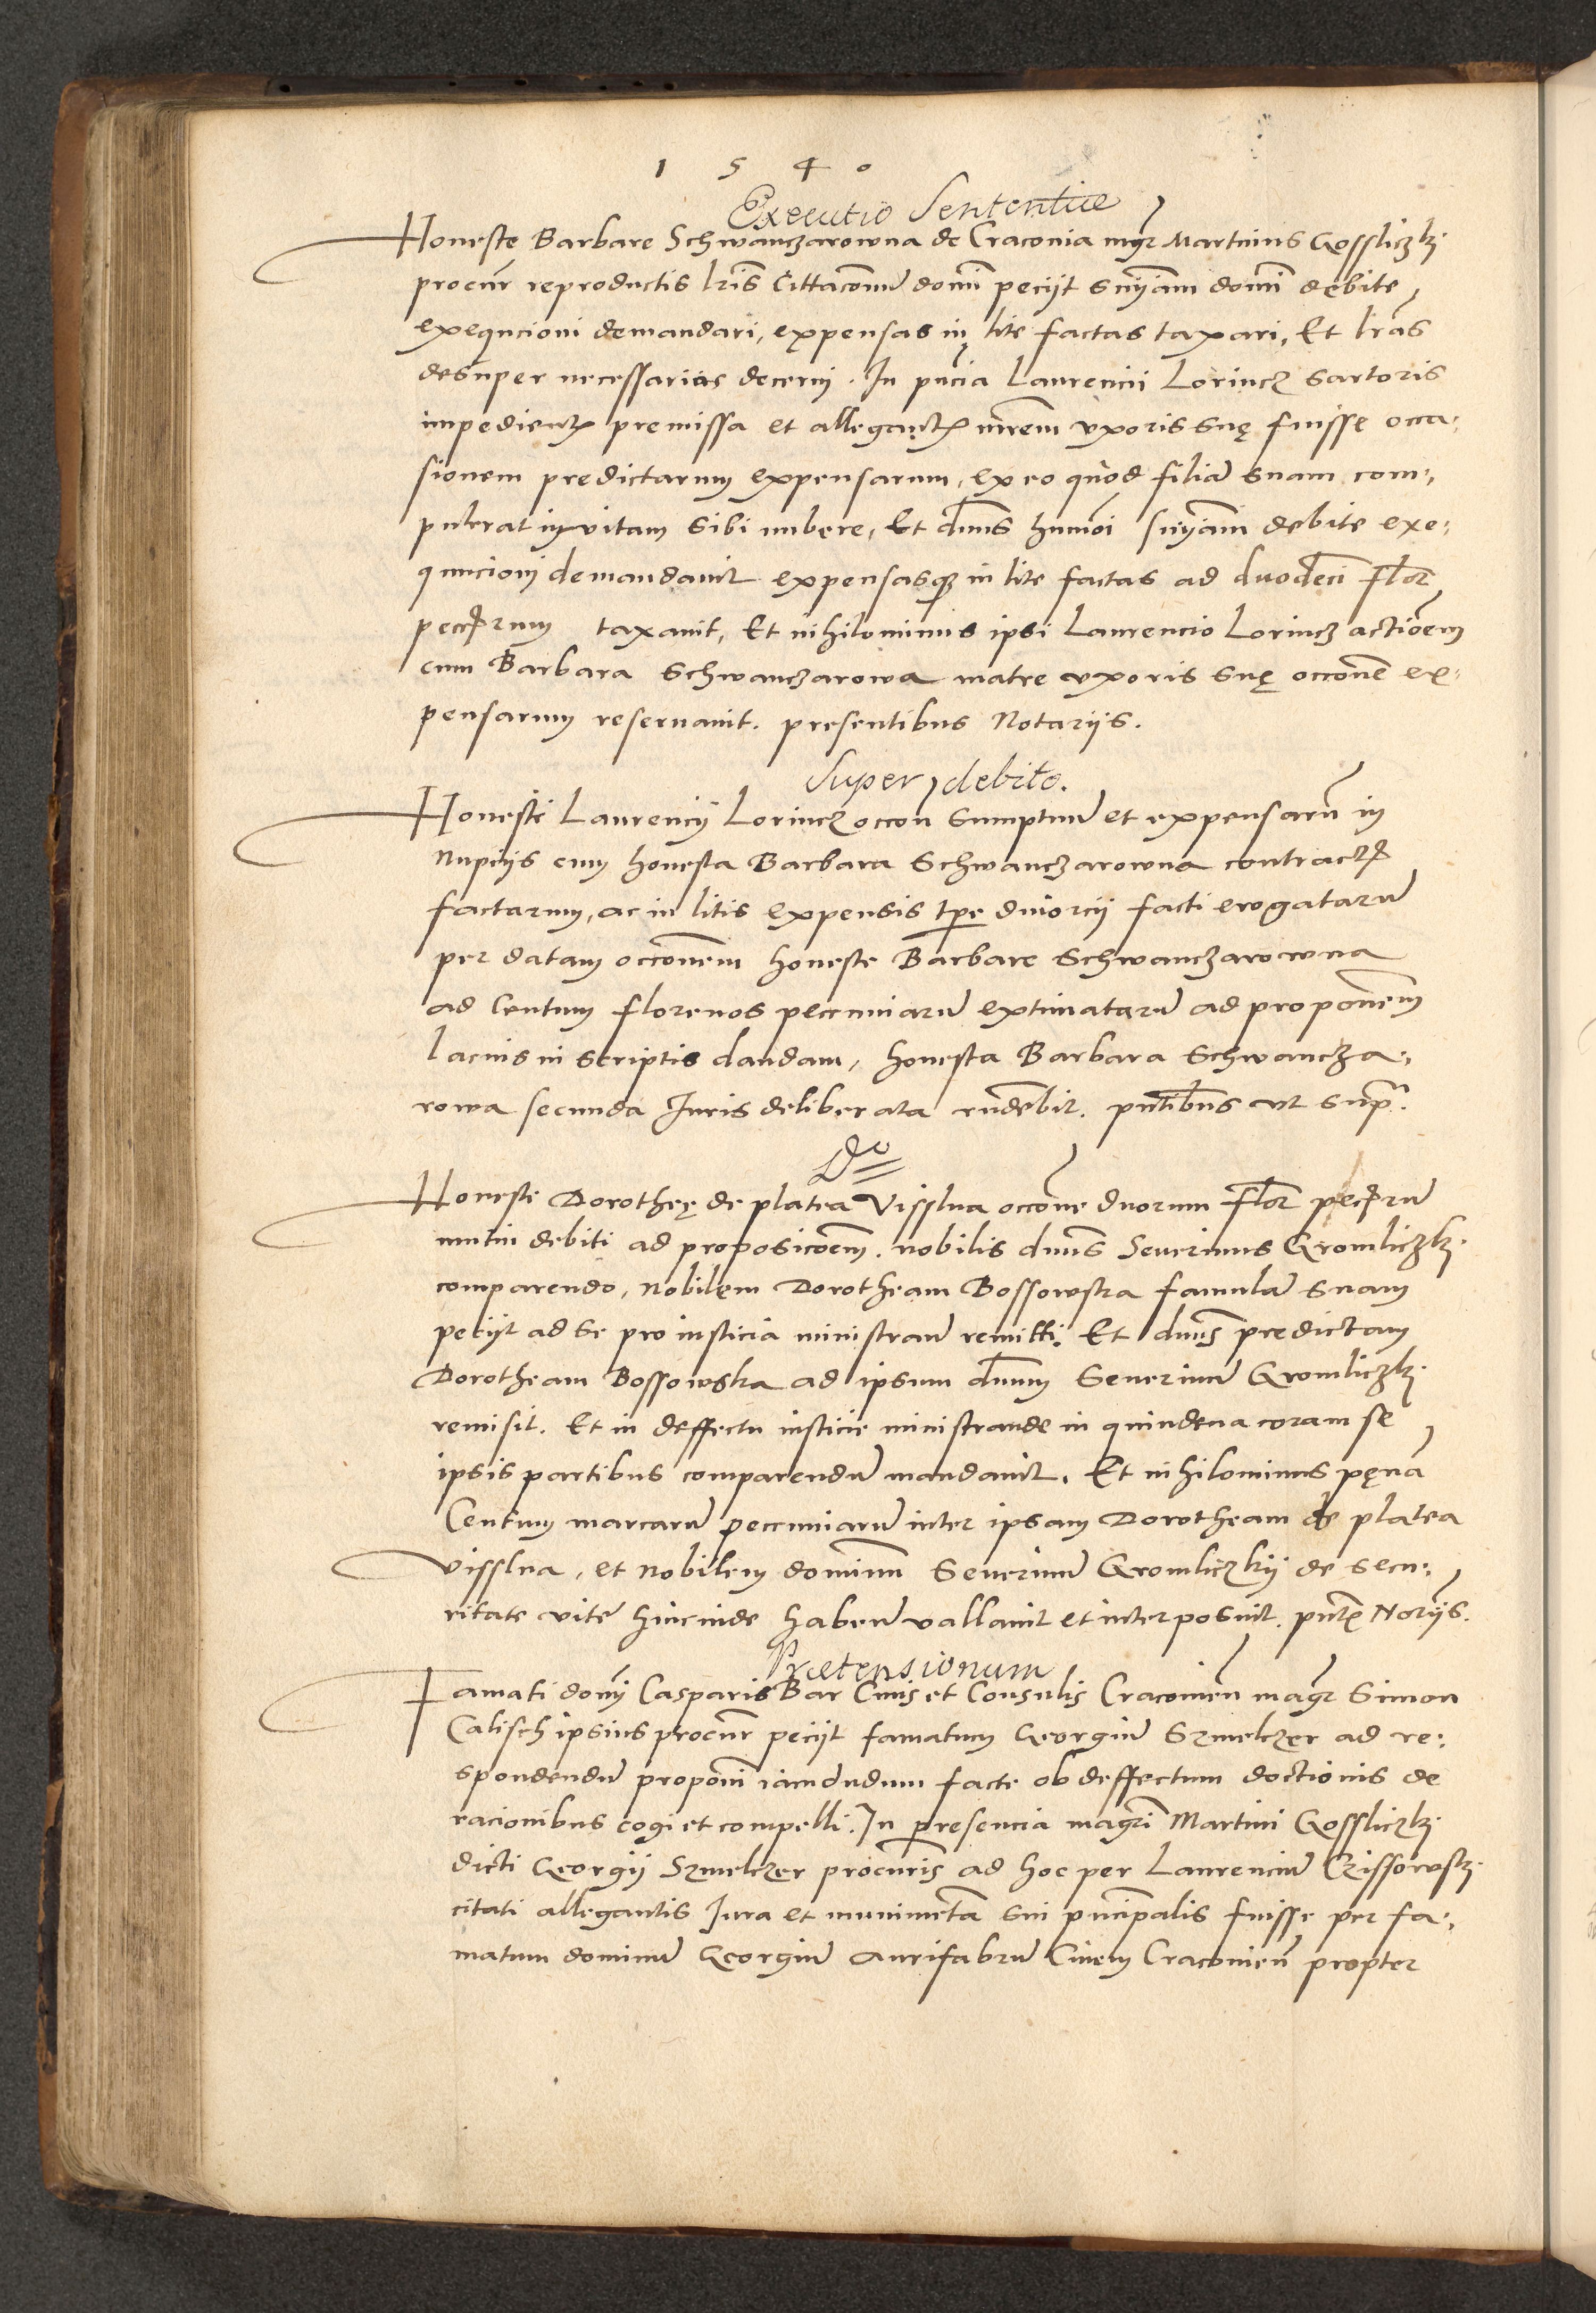 1540
Executio Sententiae
Honeste Barbare Schwanczarowna de Craconia mgr Martinus Gossliczkj
procur reproductis lris Cittaconum domi peciit snyam domi debite
exequcioni demandari, expensas in lite factas taxari, Et lras
desuper necessarias decerni. In pncia Laurencii Lorincz sartoris
impedientis premissa et allegantis mrem uxoris sue fuisse occa-
sionem predictarum expensarum, ex eo quod filia suam com-
pulerat invitam sibi nubere, Et dnus hmoi snyam debite exe-
quucioni demandavit expensasque in lite factas ad duodeci Flor
pecciarum taxavit, Et nihilominus ipsi Laurencio Lorincz actioem
cum Barbara Schwanczarowa matre uxoris sue occone ex-
pensarum reservavit. presentibus Notariis.
Super debito.
Honesti Laurencij Lorincz occon sumptuu et expensaru in
Nupciis cum honesta Barbara Schwanczarowna contractis
factarum, ac in litis expensis tpe divorcij facti erogataru
per datam occonem honeste Barbare Schwanczarowna
ad Centum florenos pecuniaru extimataru ad proponem
lacius in scriptis dandam, honesta Barbara Schwancza-
rowa secunda Juris deliberata rndebit. pntibus ut supra.
Do
Honeste Dorothee de platea Visslna occone duorum Flor pecciaru
mutui debiti ad proposicoem. nobilis dnus Severinus Gromliczkj
comparendo, nobilem Dorotheam Bossowska famula suam
peciit ad se pro iusticia ministran remitti. Et dnus predictam
Dorotheam Bossowska ad ipsum dnum Severinu Gromliczkj
remisit. Et in deffectu iusticie ministrande in quindena coram se
ipsis partibus comparendu mandavit. Et nihilominus pena
Centum marcaru pecuniaru inter ipsam Dorotheam de platea
visslna, et nobilem dominum Severinu Gromliczkij de secu-
ritate vite hincinde haben vallavit et interposuit. pntibus Noriis.
Praetensionum
Famati domi Casparis Bar Civis et Consulis Cracovien magr Simon
Calisch ipsius procur peciit famatum Georgiu Szmelczer ad re-
spondendu proponi iamdudum facte ob deffectum doctionis de
racionibus cogi et compelli. In presencia magri Martini Gossliczkj
dicti Georgij Szmelczer procuris ad hoc per Laurenciu Czissowskj
citati allegantis Jura et munimeta sui pncipalis fuisse per fa-
matum dominu Georgiu Aurifabru Civem Cracovien propter